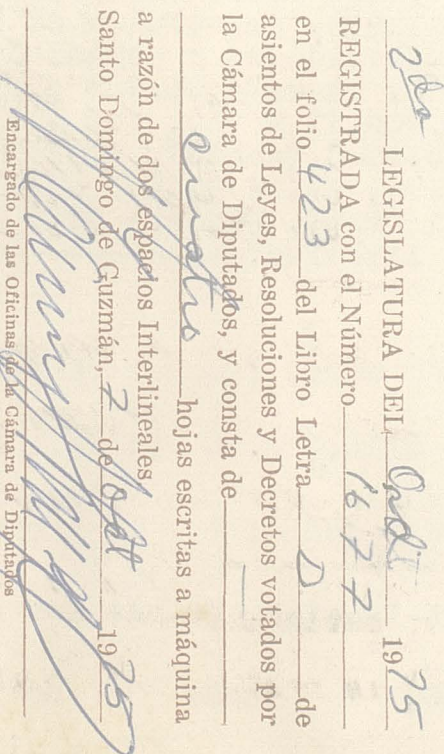 2da LEGISLATURA DEL Ord. 1975
REGISTRADA con el Número 1677
en el folio 423 del Libro Letra D de
asientos de Leyes, Resoluciones y Decretos votados por
la Cámara de Diputados, y consta de
cuatro hojas escritas a máquina
a razón de dos espacios Interlineales
Santo Domingo de Guzmán, 7 de Oct 1975
Encargado de las Oficinas de la Cámara de Diputados